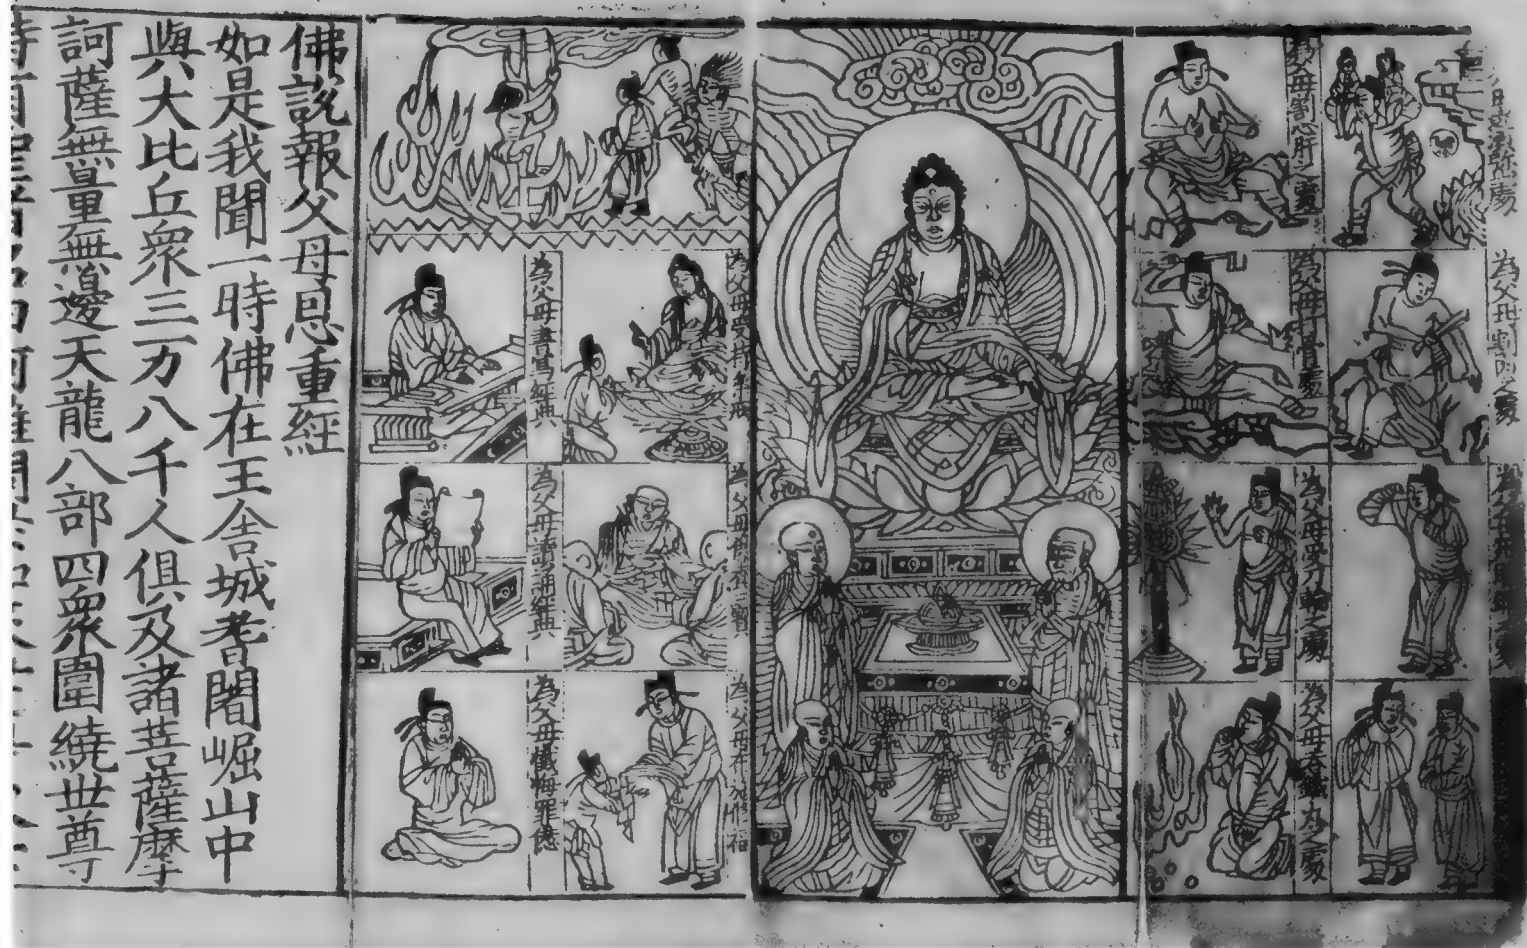 為父母割心肝之處
為父母割眼之處
為父母打骨髓處
為父母受刀輪之處
為父母吞鐵丸之處
為父母受持齋戒
為父母書寫經典
為父母供養三寶
為父母讀誦經典
為父母布施修福
為父母懺悔罪愆
佛說報父母恩重經
如是我聞一時佛在王舍城耆闍崛山中
與大比丘衆三万八千人俱及諸菩薩摩
訶薩無量無邊天龍八部四衆圍繞世尊